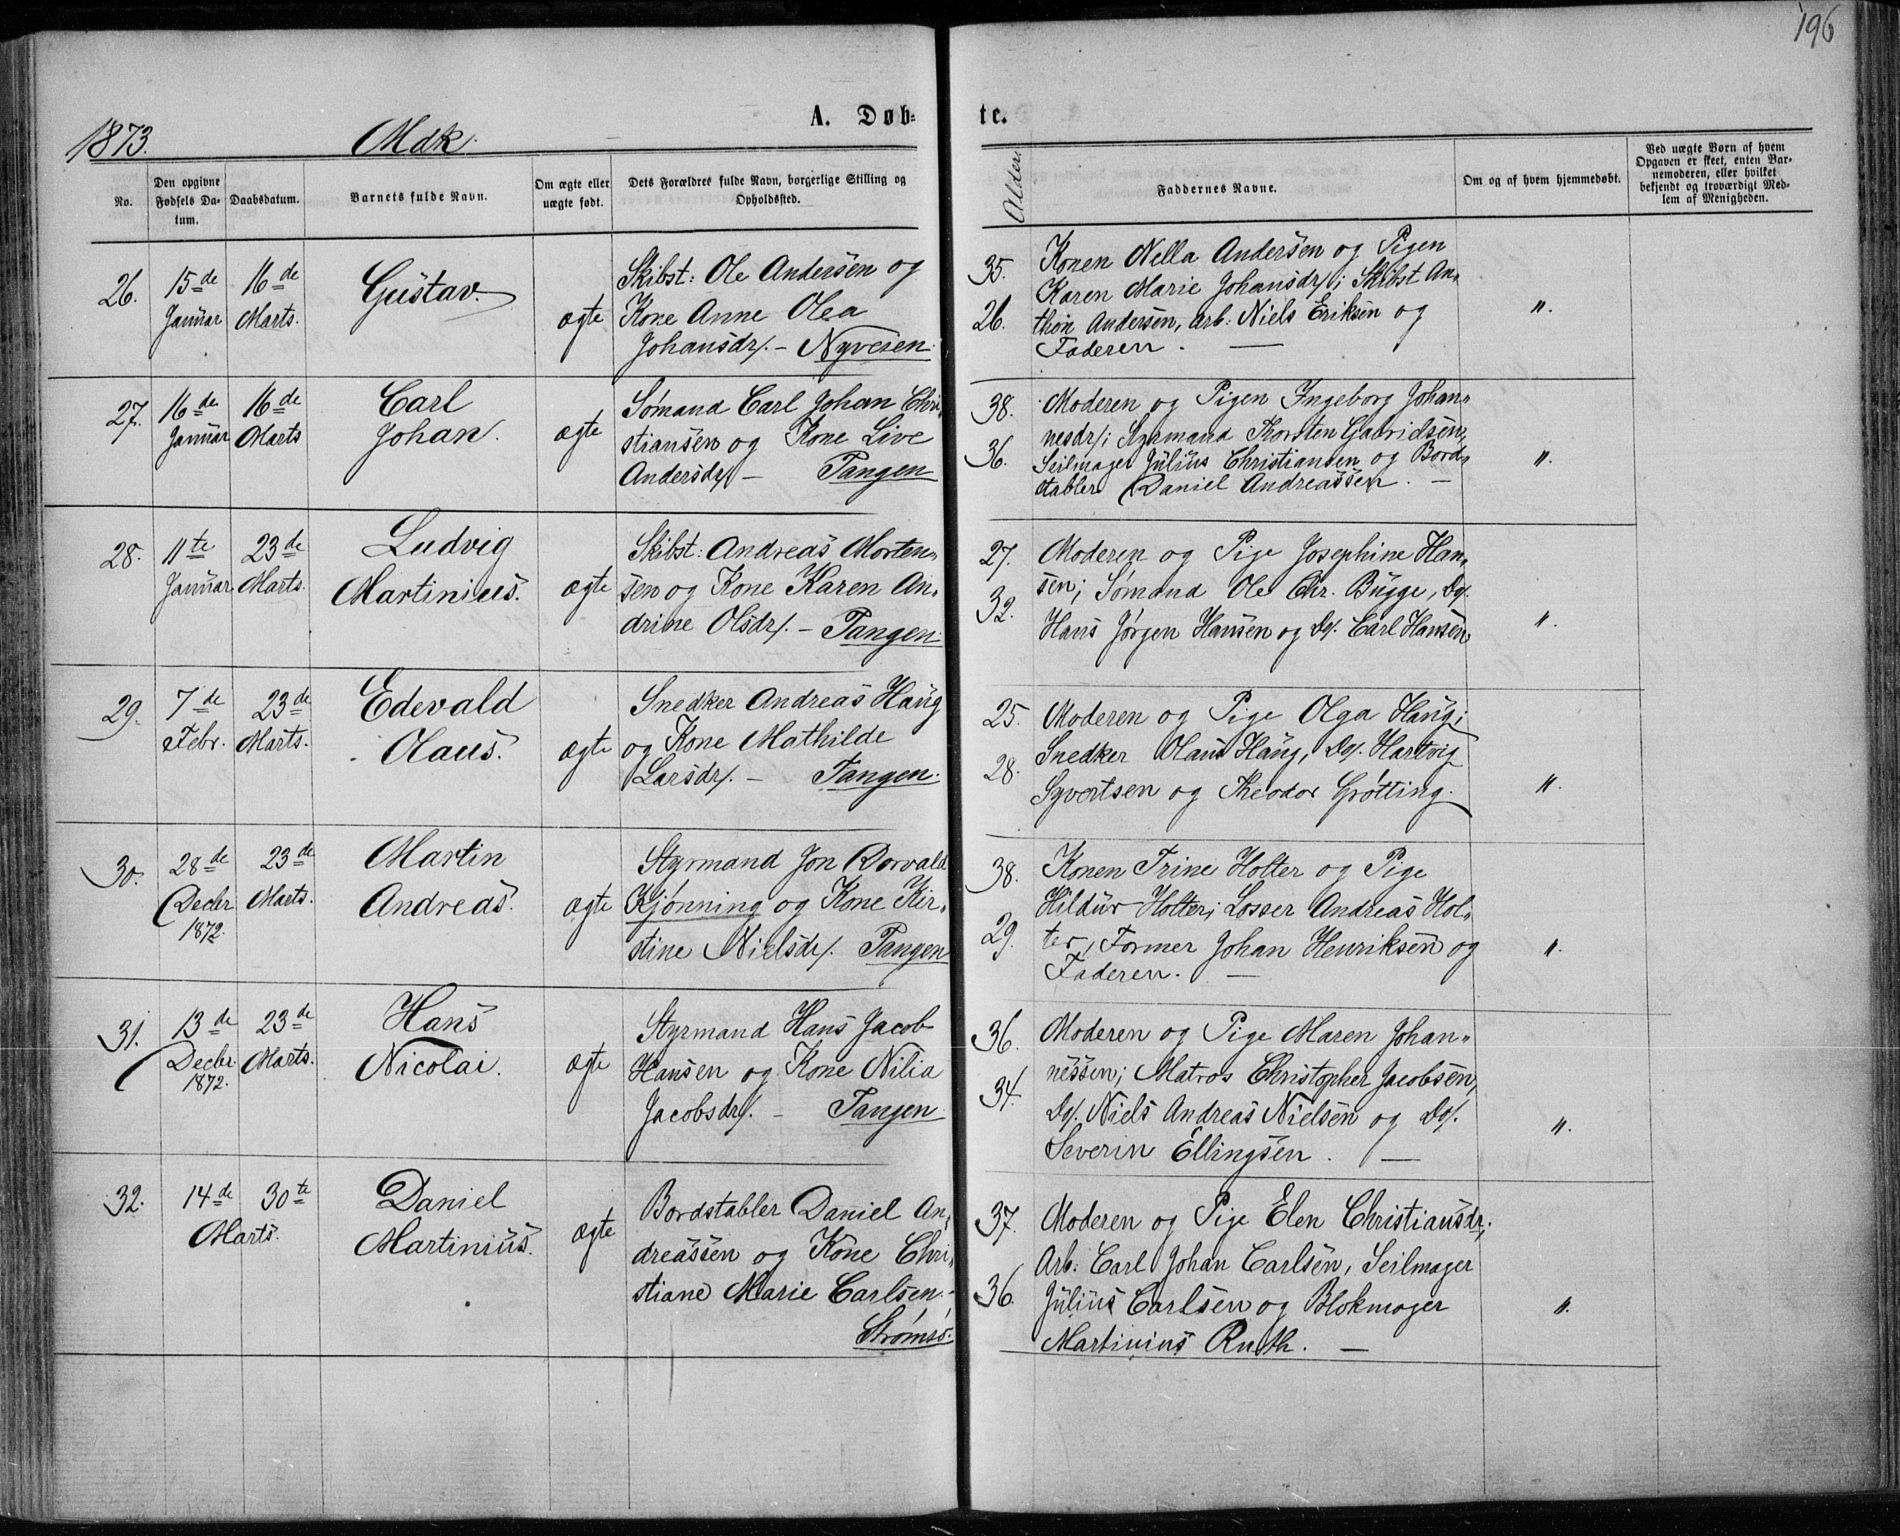 196
A. Døb- te.
1873. Mdk.
No. | Den opgivne Fødsels Datum. | Daabsdatum. | Barnets fulde Navn. | Om ægte eller uægte født. | Dets Forældres fulde Navn, borgerlige Stilling og Opholdssted. | Alderen | Faddernes Navne. | Om og af hvem hjemmedøbt. | Ved uægte Børn af hvem Opgaven er skeet, enten Barnemoderen, eller hvilket bekjendt og troværdigt Medlem af Menigheden.
26. 15de Januar 16de Marts. Gustav. ægte
Skibst: Ole Andersen og
Kone Anne Olea
Johansdr/. – Nyveien.
35. 26.
Konen Nella Andersen og Pigen
Karen Marie Johansdr/; Skibst An-
thon Andersen, Arb: Niels Eriksen og
Faderen. —
".
27. 16de Januar 16de Marts Carl Johan. ægte
Sømand Carl Johan Chri-
stiansen og Kone Live
Andersdr/ – Tangen
38. 36.
Moderen og Pigen Ingeborg Johan-
nesdr/; Styrmand Thorsten Gabrielsen,
Seilmager Julius Christiansen og Bord-
stabler Daniel Andreassen. —
".
28. 11te Januar 23de Marts. Ludvig Martinius. ægte
Skibst: Andreas Morten-
sen og Kone Karen An-
drine Olsdr/. – Tangen.
27. 32.
Moderen og Pige Josephine Han-
sen; Sømand Ole Chr. Bugge, Do/.
Hans Jørgen Hansen og Do/. Carl Hansen
".
29. 7de Febr. 23de Marts. Edevald Olaus. ægte
Snedker Andreas Haug
og Kone Mathilde
Larsdr/. – Tangen.
25. 28.
Moderen og Pige Olga Haug;
Snedker Olaus Haug, Do/. Hartvig
Syvertsen og Theodor Grøtting.
".
30. 28de Decbr 1872. 23de Marts. Martin Andreas. ægte
Styrmand Jon Dorvald
Kjønning og Kone Kir-
stine Nielsdr/. Tangen
38. 29.
Konen Trine Holter og Pige
Hildur Holter; Losser Andreas Hol-
ter, Former Johan Henriksen og
Faderen. —
".
31. 13de Decbr 1872. 23de Marts. Hans Nicolai. ægte
Styrmand Hans Jacob
Hansen og Kone Nilia
Jacobsdr/. – Tangen
36. 34.
Moderen og Pige Maren Johan-
nessen; Matros Christopher Jacobsen,
Do/. Niels Andreas Nielsen og Do/.
Severin Ellingsen. —
".
32. 14de Marts. 30te Daniel Martinius. ægte
Bordstabler Daniel An-
dreassen og Kone Chri-
stiane Marie Carlsen. –
Strømsø.
37. 36.
Moderen og Pige Elen Christiansdr;
Arb: Carl Johan Carlsen, Seilmager
Julius Carlsen og Blokmager
Martinius Ruth. —
".